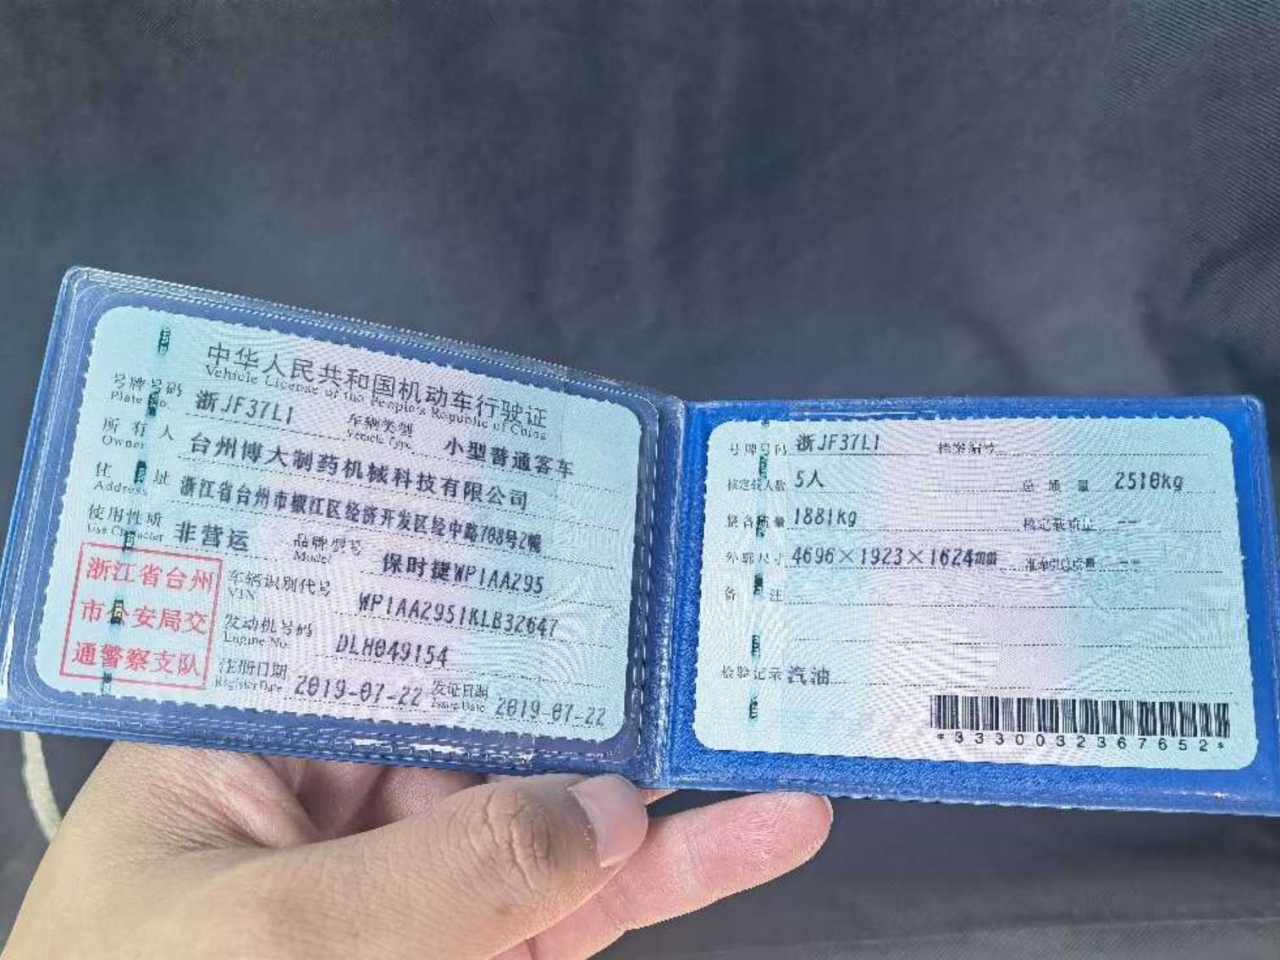 中华人民共和国机动车行驶证
Vehicle License of the People's Republic of China
号牌号码 浙JF37L1 车辆类型 小型普通客车
Plate No. Vehicle Type
所有人 台州博大制药机械科技有限公司
Owner
住址 浙江省台州市椒江区经济开发区经中路708号2幢
Address
使用性质 非营运 品牌型号 保时捷WP1AA295
Use Character Model
浙江省台州
市公安局交
通警察支队
车辆识别代号 WP1AA2951KLB32647
VIN
发动机号码 DLH049154
Engine No.
注册日期 2019-07-22 发证日期 2019-07-22
Register Date Issue Date
号牌号码 浙JF37L1 档案编号
核定载人数 5人 总质量 2510kg
整备质量 1881kg 核定载质量 --
外廓尺寸 4696×1923×1624mm 准牵引总质量 --
备注
检验记录 汽油
*3330032367652*